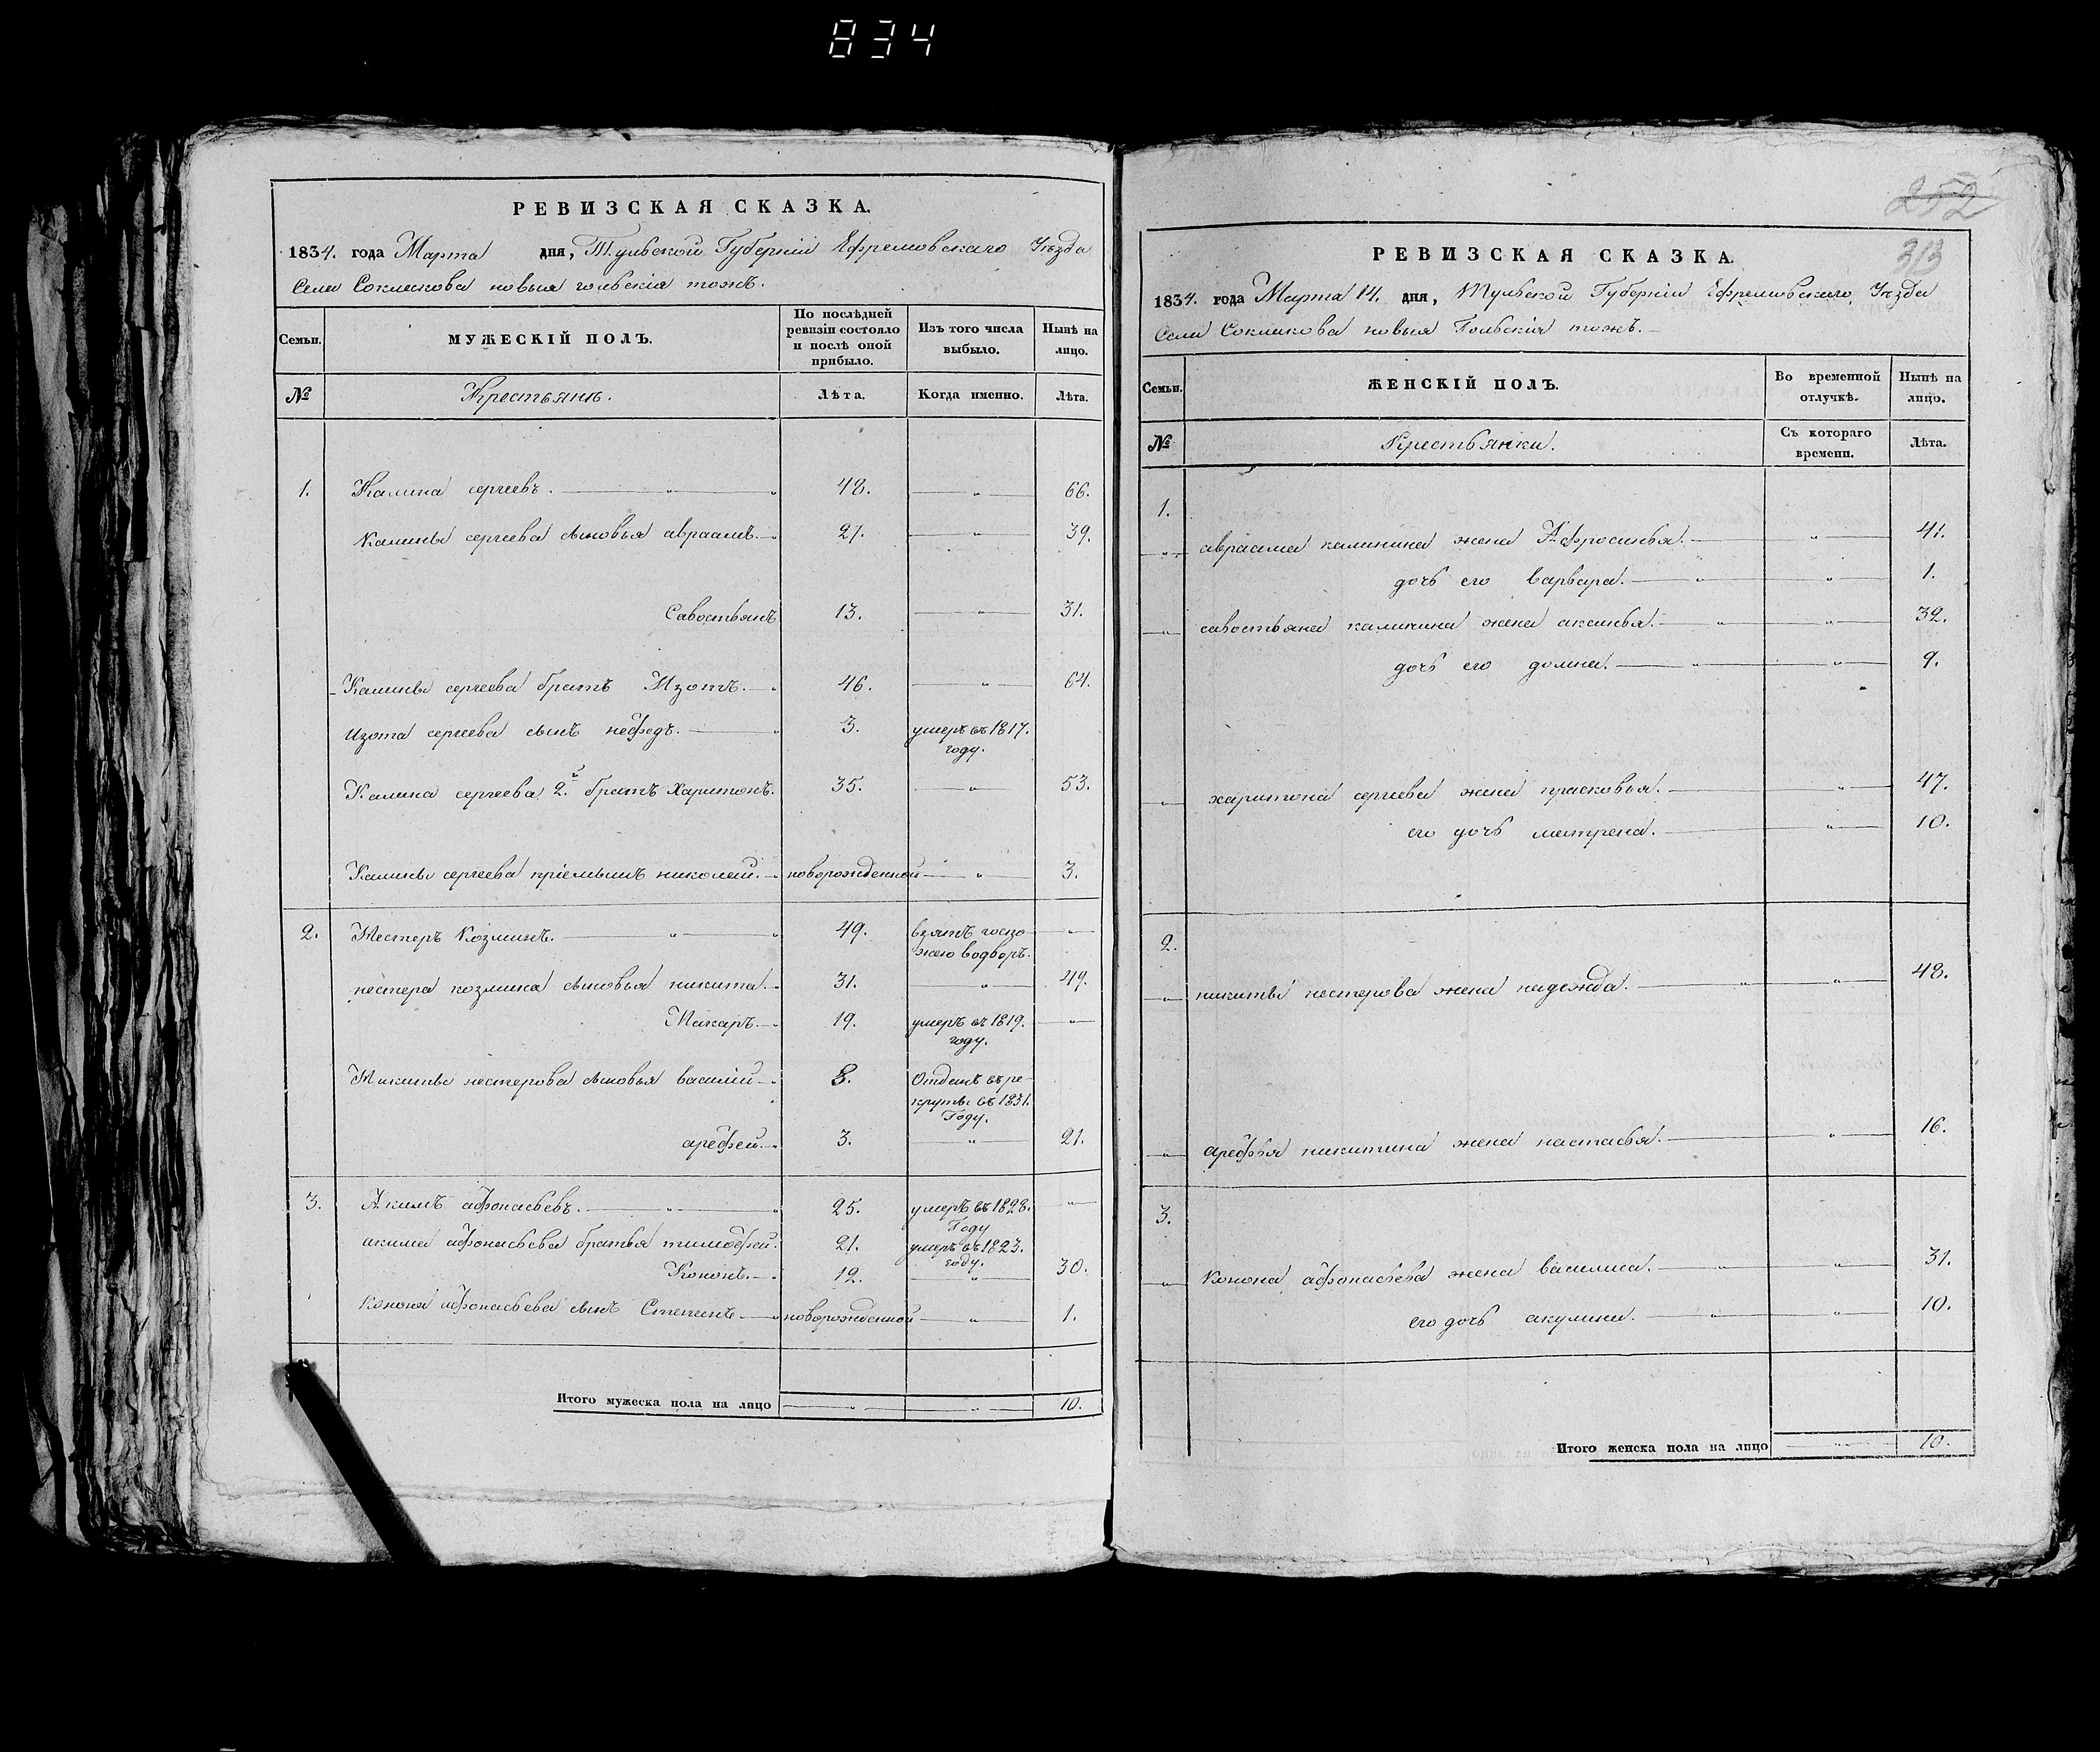 834
РЕВИЗСКАЯ СКАЗКА.
1834. года Марта дня, Тульской Губерніи Ефремовскаго Уѣзда
Села новыя гольскія тожъ.
Семьи. МУЖЕСКІЙ ПОЛЪ. По послѣдней ревизіи состояло и послѣ оной прибыло. Изъ того числа выбыло. Нынѣ на лицо.
№ Крестьянѣ. Лѣта. Когда именно. Лѣта.
1. Калина сергеевъ. 48. 66.
Калины сергеева сыновья авраамъ. 21. 39.
Савостьянъ 13. 31.
Калины сергеева братъ Изотъ. 46. 64.
Изота сергеева сынъ нефедъ. 3. умеръ въ 1817.
году.
Калина сергеева 2й братъ Харитонъ. 35. 53.
Калины сергеева пріемышъ николай. новорожденной 3.
2. Нестеръ Козминъ. 49. взятъ госпо
жею во дворъ.
нестера козмина сыновья никита. 31. 49.
Макаръ. 19. умеръ въ 1819.
году.
Никиты нестерова сыновья василій 8. Отданъ въ ре
круты въ 1831.
Году.
арефей. 3. 21.
3. Акимъ афонасьевъ. 25. умеръ въ 1828.
Году
акима афонасьева братья тимофей. 21. умеръ въ 1823.
году.
Кононъ. 12. 30.
Конона афонасьева сынъ Степанъ новорожденной 1.
Итого мужеска пола на лицо 10.
252
313
РЕВИЗСКАЯ СКАЗКА.
1834. года Марта 14. дня, Тульской Губерніи Ефремовскаго, Уѣзда
Села новыя Гольскія тожъ.
Семьи. ЖЕНСКІЙ ПОЛЪ. Во временной отлучкѣ. Нынѣ на лицо.
№ Крестьянки. Съ котораго времени. Лѣта.
1.
авраама калинина жена Афросинья. 41.
дочь его варвара. 1.
савостьяна калинина жена аксинья. 32.
дочь его домна. 9.
харитона сергеева жена прасковья. 47.
его дочь матрена. 10.
2.
никиты нестерова жена надежда. 48.
арефья никитина жена настасья. 16.
3.
Конона афонасьева жена василиса. 31.
его дочь акулина. 10.
Итого женска пола на лицо 10.